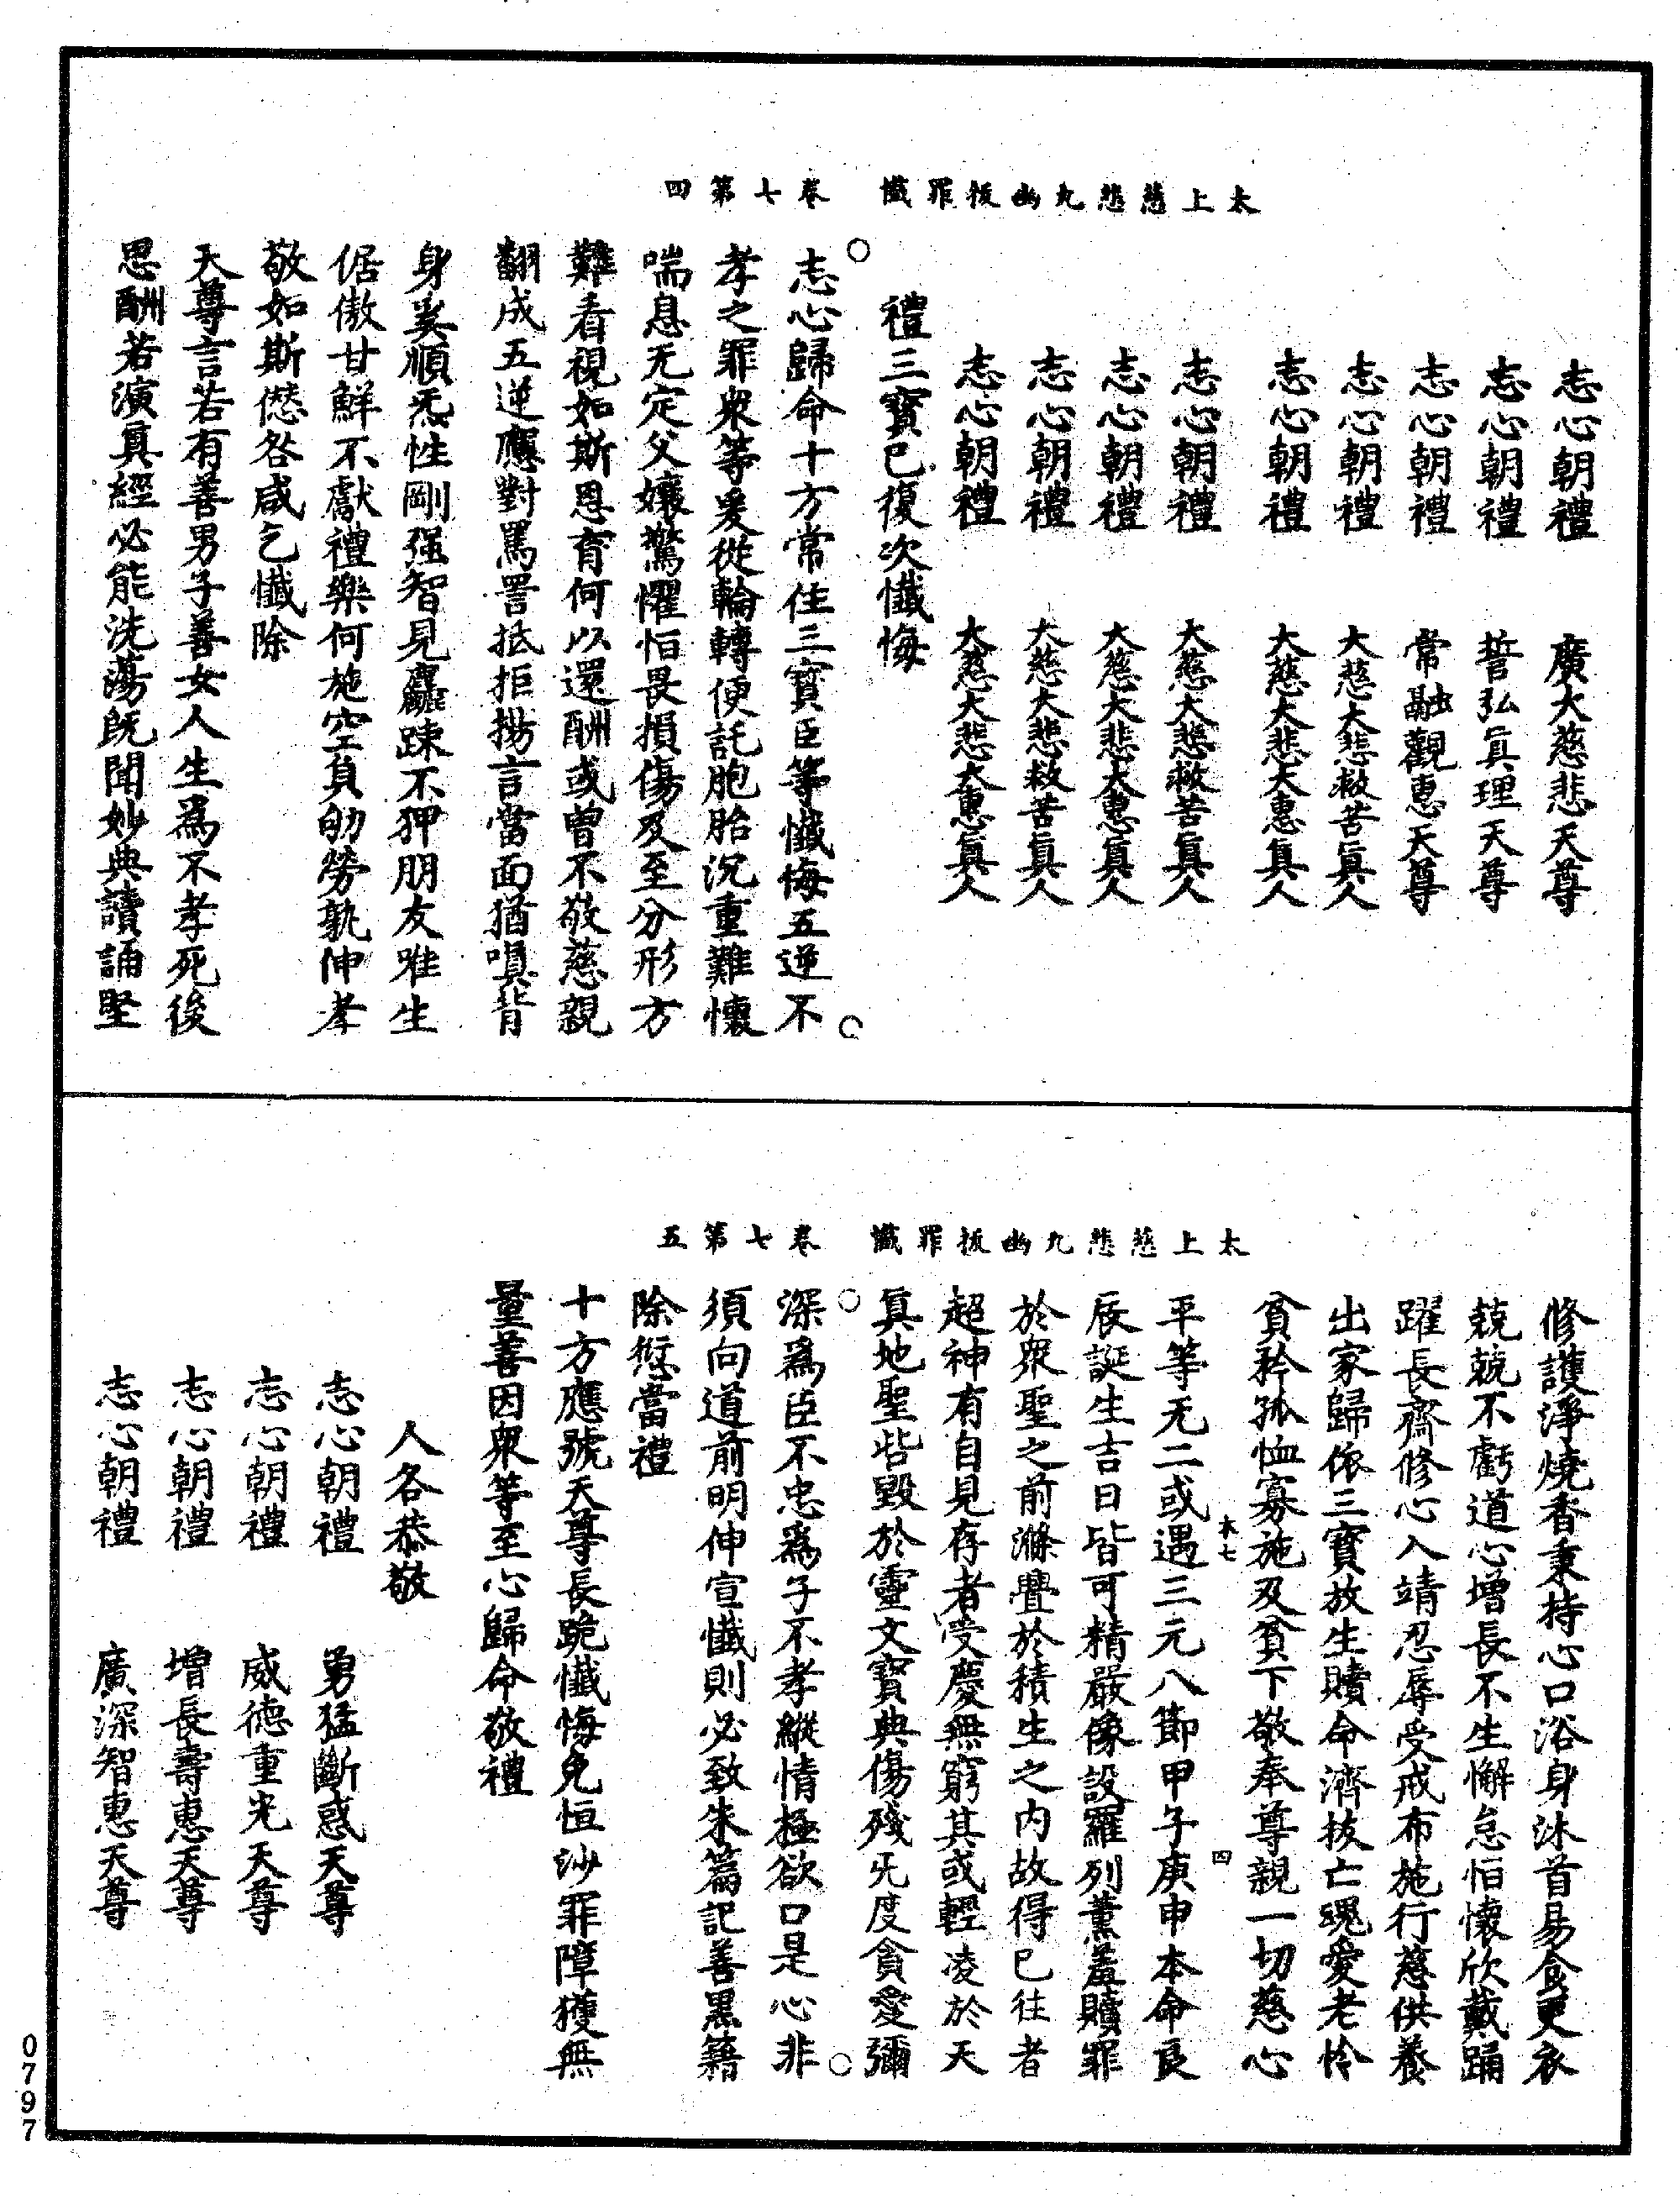 太上慈悲九幽拔罪懺　卷七第四
志心朝禮　廣大慈悲天尊
志心朝禮　誓弘真理天尊
志心朝禮　常融觀惠天尊
志心朝禮　大慈大悲救苦真人
志心朝禮　大慈大悲大惠真人
志心朝禮　大慈大悲救苦真人
志心朝禮　大慈大悲大惠真人
志心朝禮　大慈大悲救苦真人
志心朝禮　大慈大悲大惠真人
禮三寶已復次懺悔
志心歸命十方常住三寶臣等懺悔五逆不
孝之罪衆等爰從輪轉便託胞胎沉重難懷
喘息无定父孃驚懼怕畏損傷及至分形方
難看視如斯恩育何以還酬或曾不敬慈親
翻成五逆應對罵詈抵拒揚言當面猶嗔背
身奚順炁性剛强智見麤踈不狎朋友唯生
倨傲甘鮮不獻禮樂何施空負劬勞孰伸孝
敬如斯僽咎咸乞懺除
天尊言若有善男子善女人生爲不孝死後
思酬若演真經必能洗蕩旣聞妙典讀誦堅
太上慈悲九幽拔罪懺　卷七第五
修護淨燒香秉持心口浴身沐首易食更衣
兢兢不虧道心增長不生懈怠怕懷欣戴踊
躍長齋修心入靖忍辱受戒布施行慈供養
出家歸依三寶放生贖命濟拔亡魂愛老怜
貧矜孤恤寡施及貧下敬奉尊親一切慈心
木七　四
平等无二或遇三元八節甲子庚申本命良
辰誕生吉日皆可精嚴像設羅列薰羞贖罪
於衆聖之前滌舋於積生之内故得已往者
超神有自見存者受慶無窮其或輕凌於天
真地聖呰毀於靈文寶典傷殘旡度貪愛彌
深爲臣不忠爲子不孝縱情極欲口是心非
須向道前明伸宣懺則必致朱篇記善黑籍
除愆當禮
十方應號天尊長跪懺悔免恒沙罪障獲無
量善因衆等至心歸命敬禮
人各恭敬
志心朝禮　勇猛斷惑天尊
志心朝禮　威德重光天尊
志心朝禮　增長壽惠天尊
志心朝禮　廣深智惠天尊
0797